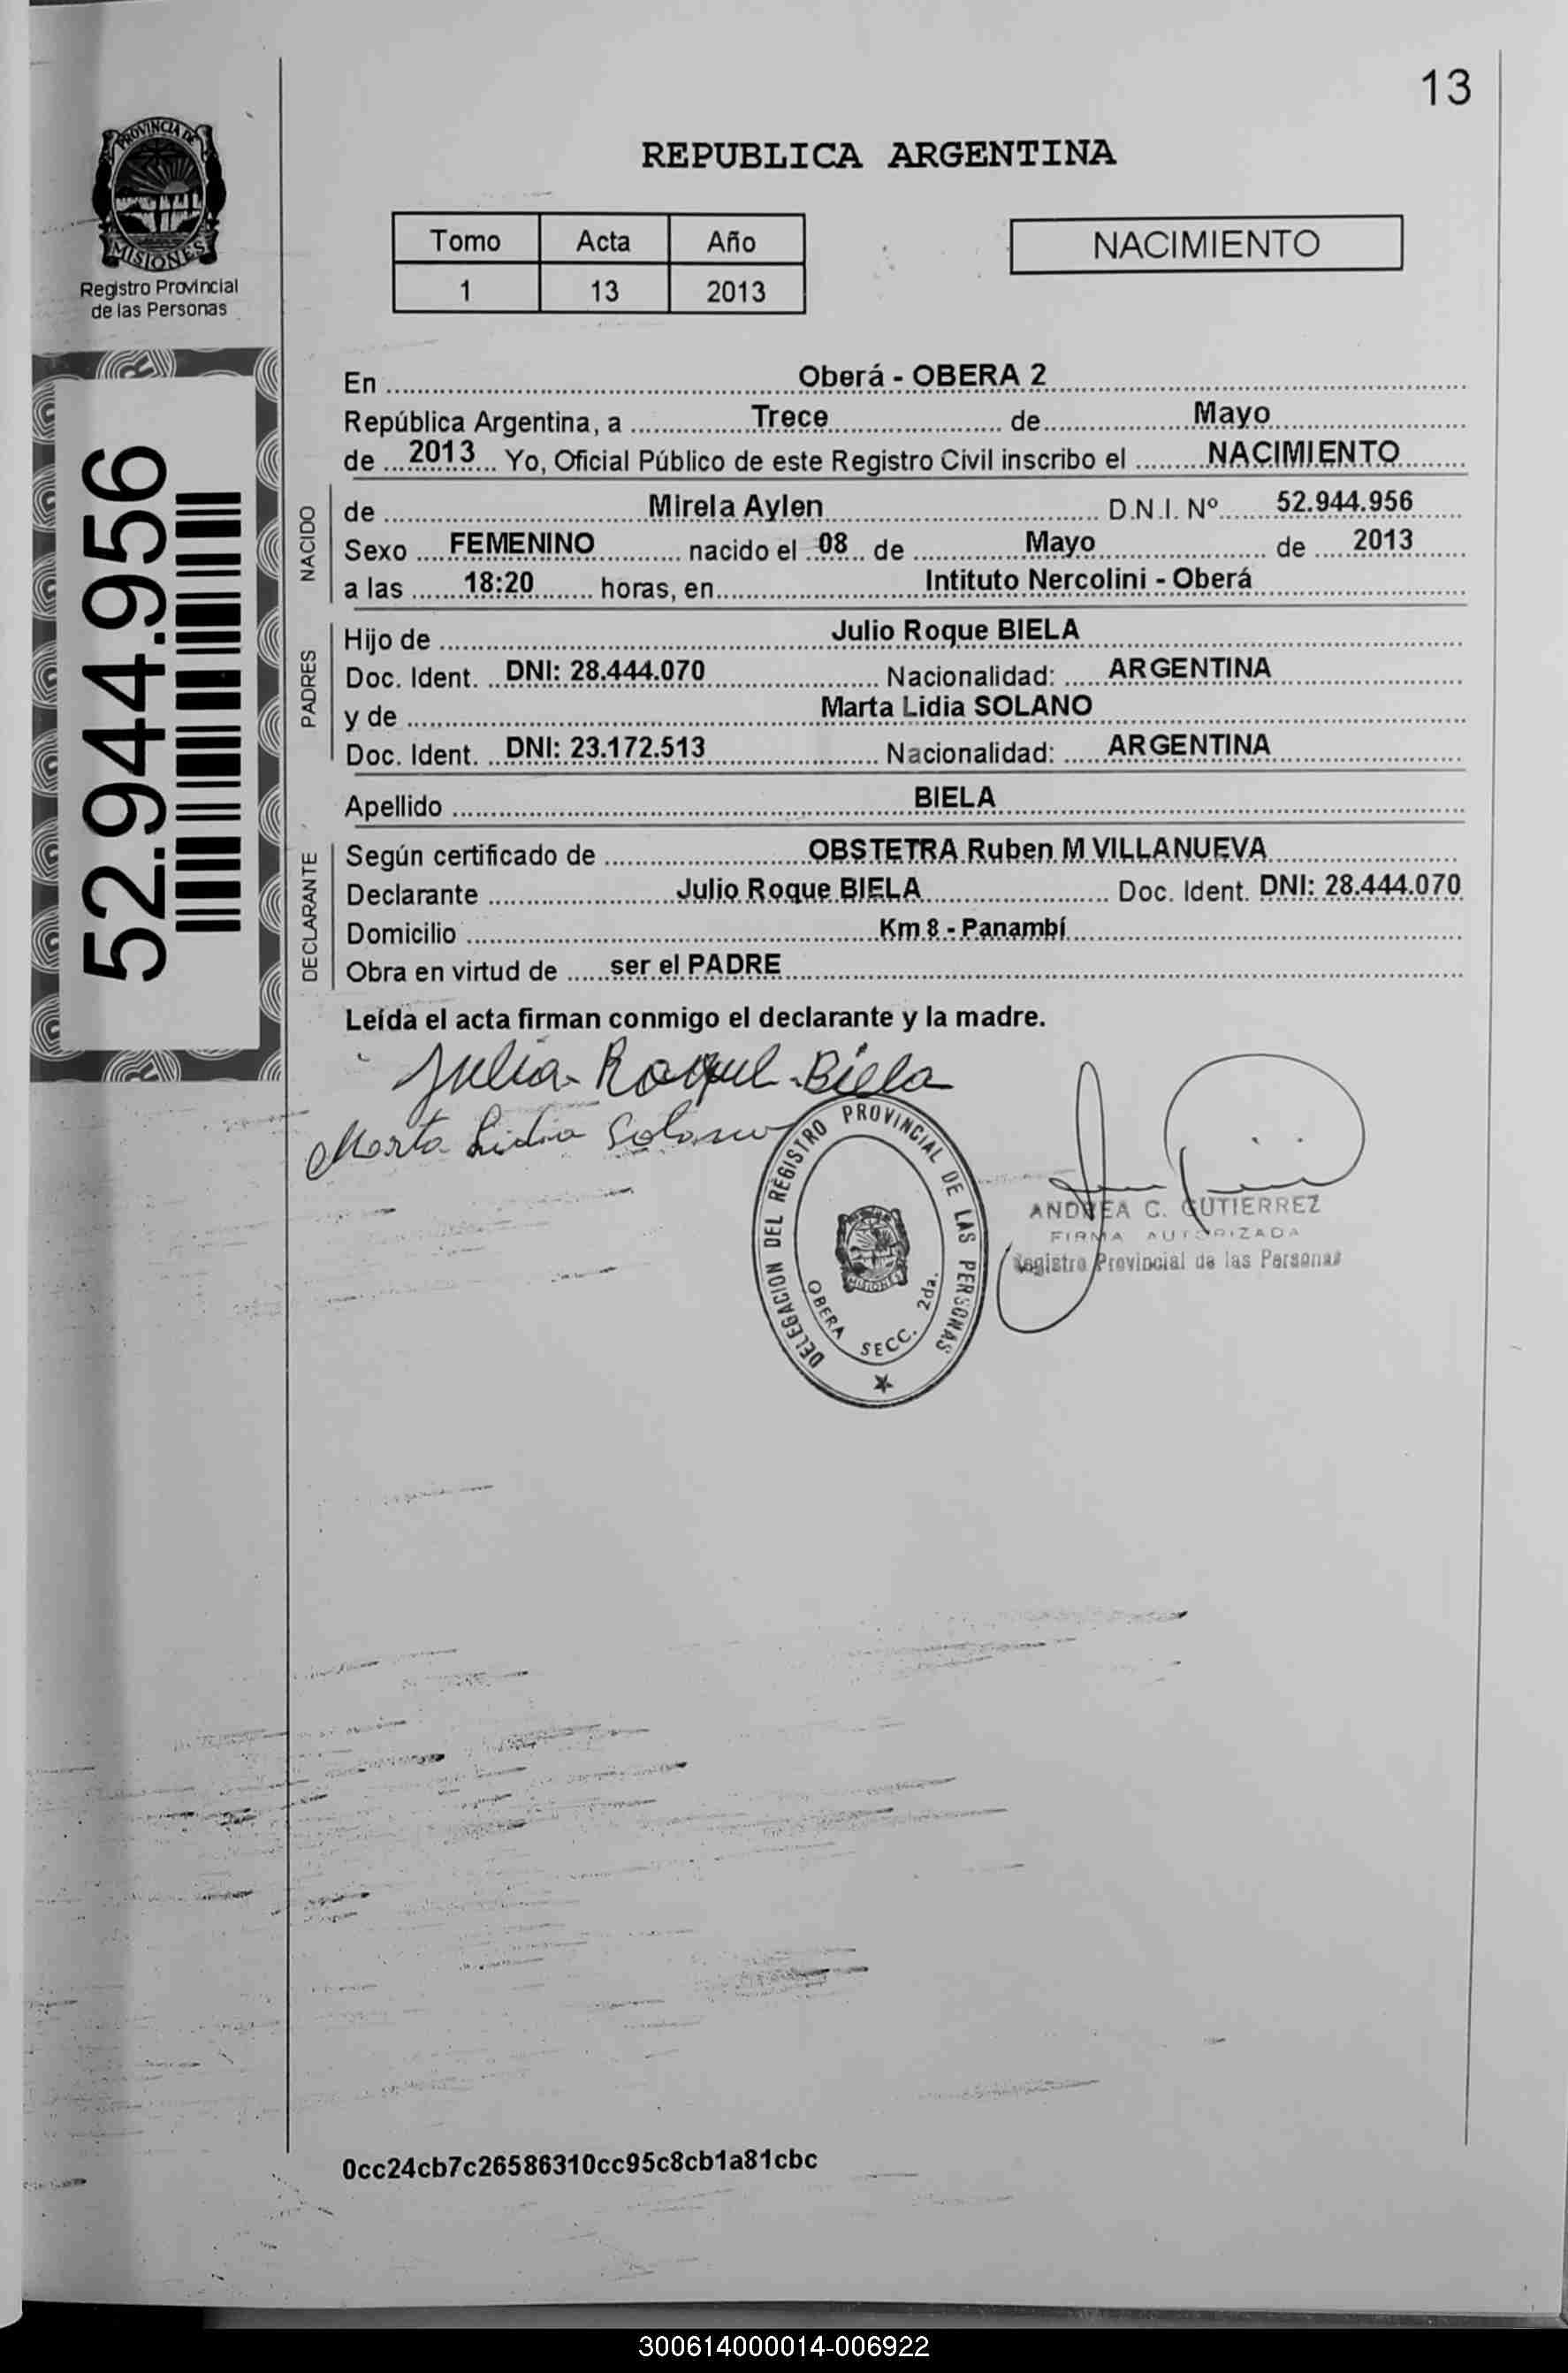 13
PROVINCIA DE
MISIONES
Registro Provincial
de las Personas
REPUBLICA ARGENTINA
Tomo Acta Año
1 13 2013
NACIMIENTO
52.944.956
En Oberá - OBERA 2
República Argentina, a Trece de Mayo
de 2013 Yo, Oficial Público de este Registro Civil inscribo el NACIMIENTO
NACIDO
de Mirela Aylen D.N.I. Nº 52.944.956
Sexo FEMENINO nacido el 08 de Mayo de 2013
a las 18:20 horas, en Intituto Nercolini - Oberá
PADRES
Hijo de Julio Roque BIELA
Doc. Ident. DNI: 28.444.070 Nacionalidad: ARGENTINA
y de Marta Lidia SOLANO
Doc. Ident. DNI: 23.172.513 Nacionalidad: ARGENTINA
Apellido BIELA
DECLARANTE
Según certificado de OBSTETRA Ruben M VILLANUEVA
Declarante Julio Roque BIELA Doc. Ident. DNI: 28.444.070
Domicilio Km 8 - Panambí
Obra en virtud de ser el PADRE
Leída el acta firman conmigo el declarante y la madre.
Biela
Marta Lidia Solano
DELEGACION DEL REGISTRO PROVINCIAL DE LAS PERSONAS
MISIONES
OBERA SECC. 2da.
ANDREA C. GUTIERREZ
FIRMA AUTORIZADA
Registro Provincial de las Personas
0cc24cb7c26586310cc95c8cb1a81cbc
300614000014-006922